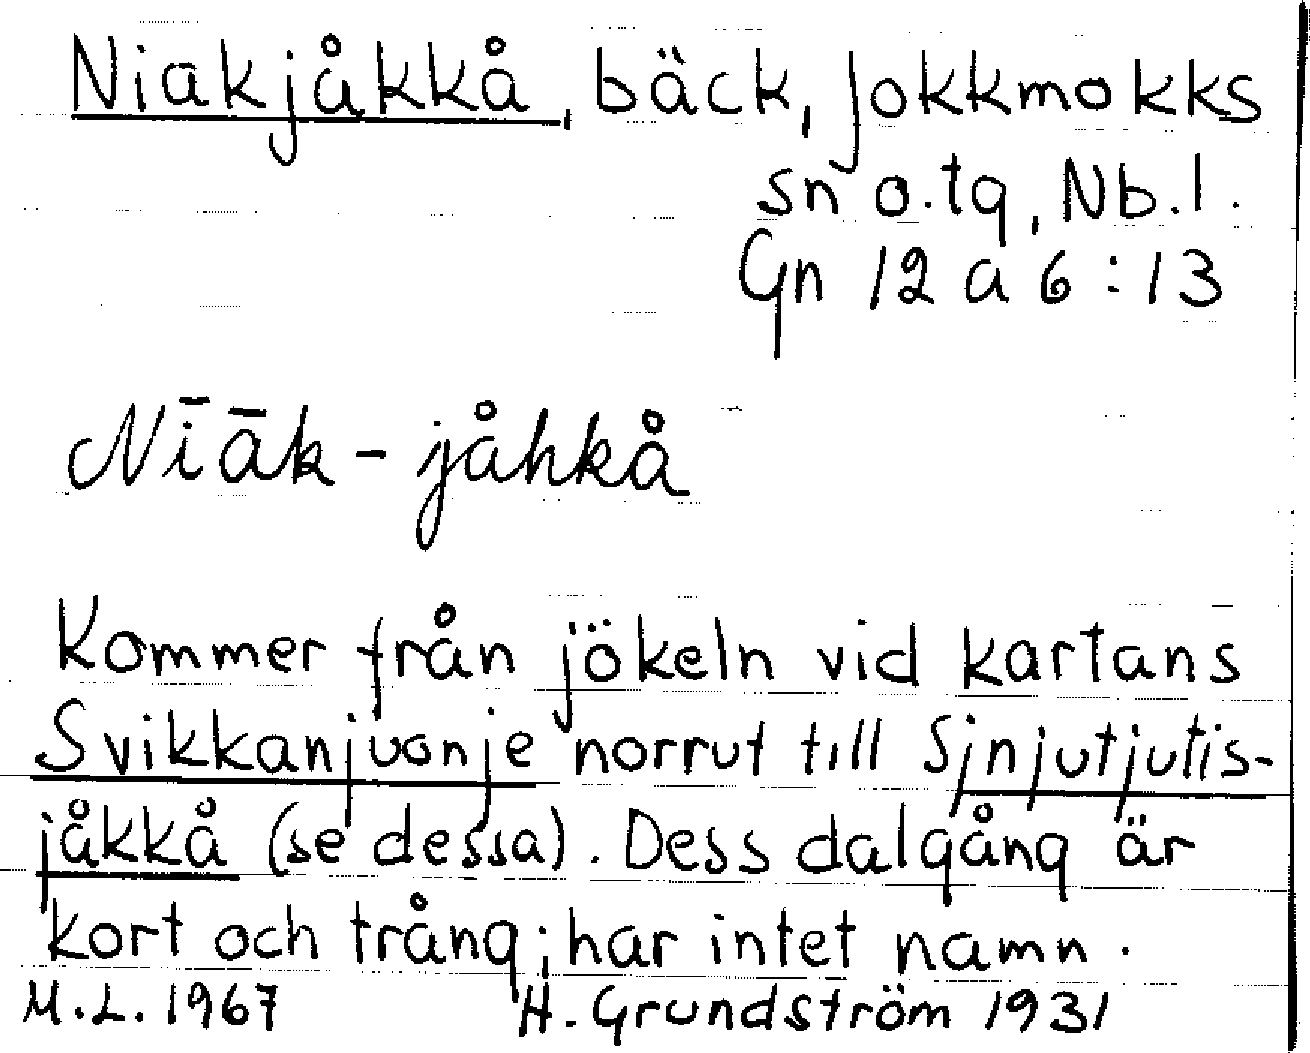 Niakjåkkå, bäck, Jokkmokks
sn o.tg, Nb.l.
Gn 12 a 6:13
Nīāk-jåhkå
Kommer från jökeln vid kartans
Svikkanjuonje norrut till Sjnjutjutis-
jåkkå (se dessa). Dess dalgång är
kort och trång; har intet namn.
M.L. 1967 H. Grundström 1931